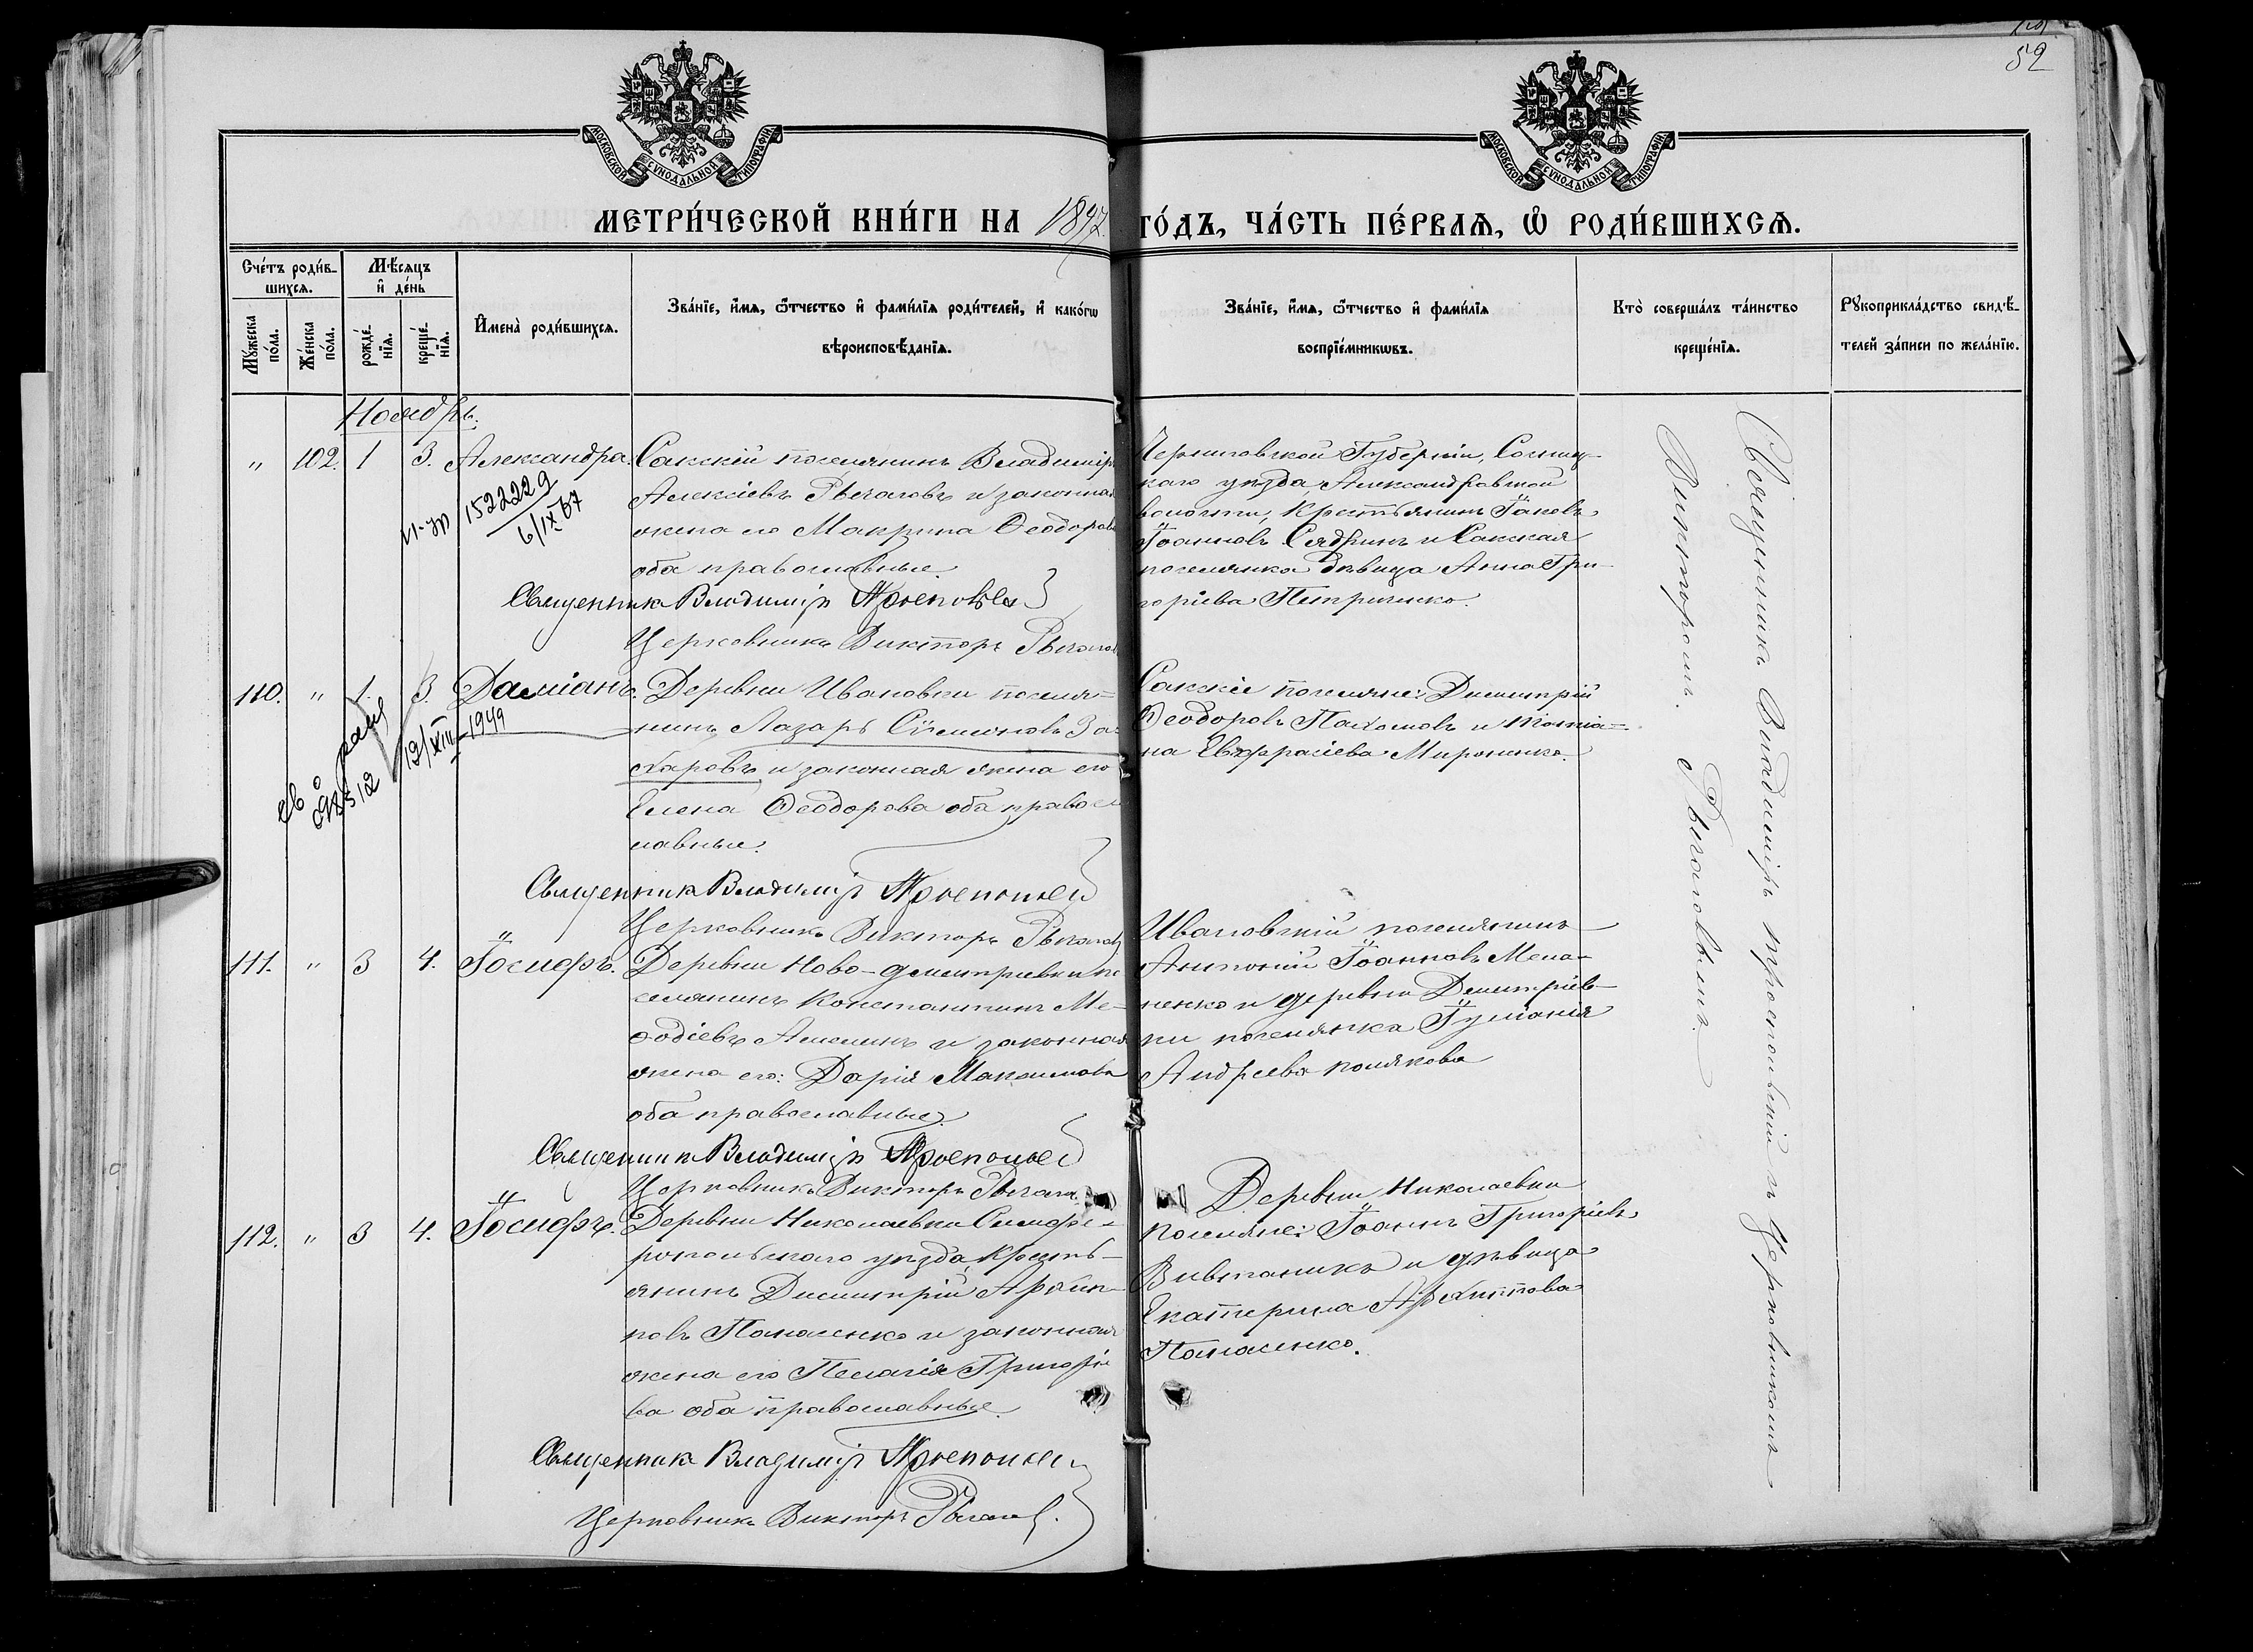 52
МОСКОВСКОЙ СѴНОДАЛЬНОЙ ТИПОГРАФІИ
МОСКОВСКОЙ СѴНОДАЛЬНОЙ ТИПОГРАФІИ
МЕТРИ́ЧЕСКОЙ КНИ́ГИ НА 1897 ГО́ДЪ, ЧА́СТЬ ПЕ́РВАѦ, Ѽ РОДИ́ВШИХСѦ.
Сче́тъ роди́в-
шихсѧ.
Мꙋ́жеска
по́ла.
Же́нска
по́ла.
Мѣ́сѧцъ
и҆ де́нь
рожде́-
нїѧ.
креще́-
нїѧ.
И҆мена̀ роди́вшихсѧ.
Зва́нїе, и҆́мѧ, ѻ҆́тчество и҆ фами́лїѧ роди́телей, и҆ како́гѡ
вѣроисповѣ́данїѧ.
Зва́нїе, и҆́мѧ, ѻ҆́тчество и҆ фами́лїѧ
воспрїе́мникѡвъ.
Кто̀ соверша́лъ та́инство
креще́нїѧ.
Рꙋкоприкла́дство свидѣ́-
телей за́писи по жела́нїю.
Ноябрь.
" 102. 1 3. Александра.
1522229
6/IX 67
Сакскій поселянинъ Владиміръ
Алексіевъ Рычаговъ и законная
жена его Макрина Ѳеодорова
оба православные.
Священникъ Владиміръ
Церковникъ Викторъ Рычагов
Черниговской Губерніи, Сосниц-
каго уѣзда, Александровской
волости, крестьянинъ Іаковъ
Іоанновъ Сядринъ и Сакская
поселянка дѣвица Анна Гри-
горіева Петриченко.
110. " 1. 3. Даміанъ.
098512
13/XIII-1949
Деревни Ивановки поселя-
нинъ Лазарь Сѵмеоновъ За-
харовъ и законная жена его
Елена Ѳеодорова оба правос
лавные.
Священникъ Владиміръ
Церковникъ Викторъ Рычагов
Сакскіе поселяне: Димитрій
Ѳеодоровъ Пахомовъ и Татіа-
на Евфрасіева Мироненко.
111. " 3 4. Іосифъ.
Деревни Ново-Димитріевки по
селянинъ Константинъ Ме-
ѳодіевъ Амелинъ и законная
жена его: Дарія Максимова
оба православные.
Священникъ Владиміръ
Церковникъ Викторъ Рычагов
Ивановскій поселянинъ
Антоній Іоанновъ Мела-
ненко и деревни Димитріев-
ки поселянка Іуліанія
Андреева Полякова
112. " 3 4. Іосифъ.
Деревни Николаевки Симфе-
ропольскаго уѣзда, кресть-
янинъ Димитрій Архип-
повъ Панасенко и законная
жена его Пелагія Григоріе
ва оба православные.
Священникъ Владиміръ
Церковникъ Викторъ Рычагов.
Деревни Николаевки
поселяне: Іоаннъ Григоріевъ
Вивтаникъ и дѣвица
Екатерина Архиппова
Панасенко.
Священникъ Владиміръ и Церковникомъ
Викторомъ Рычаговымъ.